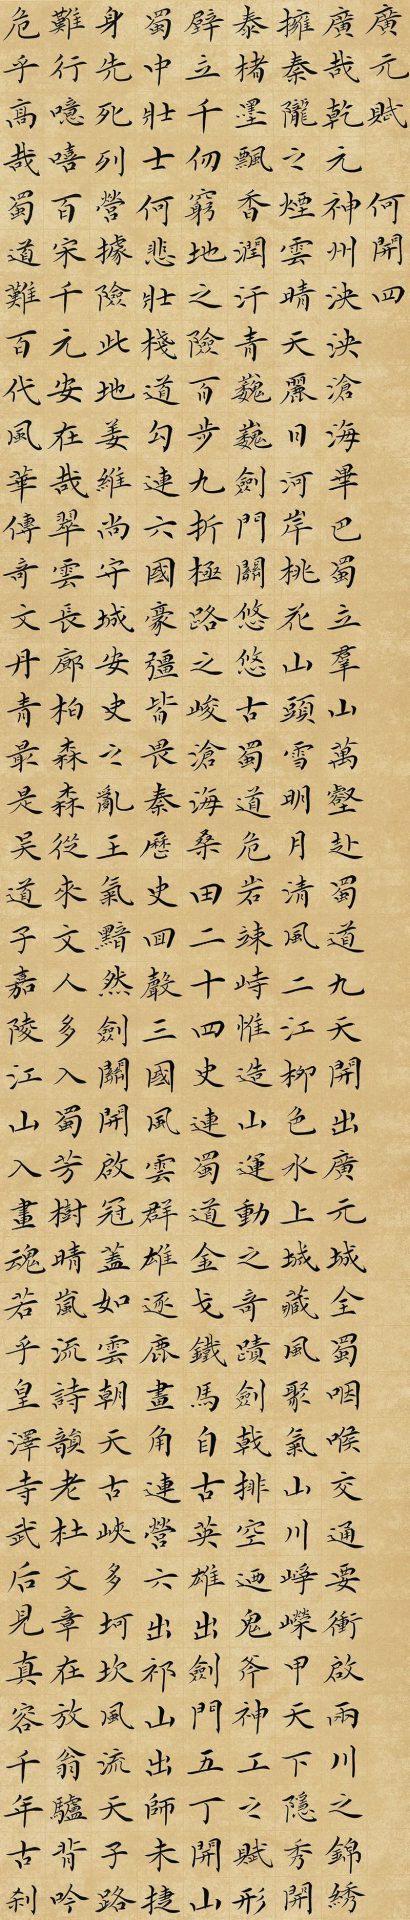 廣元賦 何開四
廣哉乾元神州泱泱滄海畢巴蜀立羣山萬壑赴蜀道九天開出廣元城全蜀咽喉交通要衝啟兩川之錦綉
擁秦隴之煙雲晴天麗日河岸桃花山頭雪明月清風二江柳色水上城藏風聚氣山川崢嶸甲天下隱秀開
泰楮墨飄香潤汗青巍巍劍門關悠悠古蜀道危岩竦峙惟造山運動之奇蹟劍戟排空迺鬼斧神工之賦形
壁立千仞窮地之險百步九折極路之峻滄海桑田二十四史連蜀道金戈鐵馬自古英雄出劍門五丁開山
蜀中壯士何悲壯棧道勾連六國豪彊皆畏秦歷史回聲三國風雲群雄逐鹿畫角連營六出祁山出師未捷
身先死列營據險此地姜維尚守城安史之亂王氣黯然劍關開啟冠蓋如雲朝天古峽多坷坎風流天子路
難行噫嘻百宋千元安在哉翠雲長廊柏森森從來文人多入蜀芳樹晴嵐流詩韻老杜文章在放翁驢背吟
危乎高哉蜀道難百代風華傳奇文丹青最是吴道子嘉陵江山入畫魂若乎皇澤寺武后見真容千年古刹